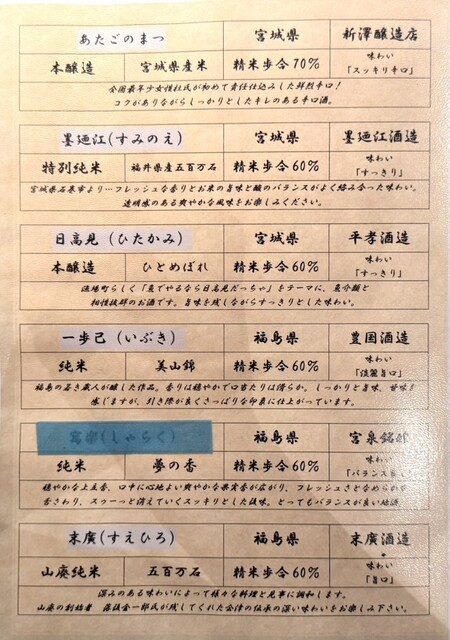 あたごのまつ 宮城県 新澤醸造店
本醸造 宮城県産米 精米歩合70% 味わい「スッキリ辛口」
全国最年少女性杜氏が初めて責任仕込みした鮮烈辛口！
コクがありながらしっかりとしたキレのある辛口酒。
墨廼江(すみのえ) 宮城県 墨廼江酒造
特別純米 福井県産五百万石 精米歩合60% 味わい「すっきり」
宮城県石巻市より…フレッシュな香りとお米の旨味と酸のバランスがよく絡み合った味わい。
透明感のある爽やかな風味をお楽しみください。
日高見(ひたかみ) 宮城県 平孝酒造
本醸造 ひとめぼれ 精米歩合60% 味わい「すっきり」
漁場町らしく「魚でやるなら日高見だっちゃ」をテーマに、魚介類と
相性抜群のお酒です。旨味を残しながらすっきりとした味わい。
一歩己(いぶき) 福島県 豊国酒造
純米 美山錦 精米歩合60% 味わい「淡麗旨口」
福島の若き蔵人が醸した作品。香りは穏やかで口当たりは滑らか。しっかりと旨味、甘味を
感じますが、引き際が良くさっぱりな印象に仕上がっています。
寫楽(しゃらく) 福島県 宮泉銘醸
純米 夢の香 精米歩合60% 味わい「バランス
穏やかな上立香、口中に心地よい爽やかな果実香が広がり、フレッシュさとなめらかな
舌さわり、スゥーっと消えていくスッキリとした後味。とってもバランスが良い純酒
末廣(すえひろ) 福島県 末廣酒造
山廃純米 五百万石 精米歩合60% 味わい「旨口」
深みのある味わいによって様々な料理と見事に調和します。
山廃の創始者 嘉儀金一郎氏が残してくれた会津の伝承の深い味わいをお楽しみ下さい。